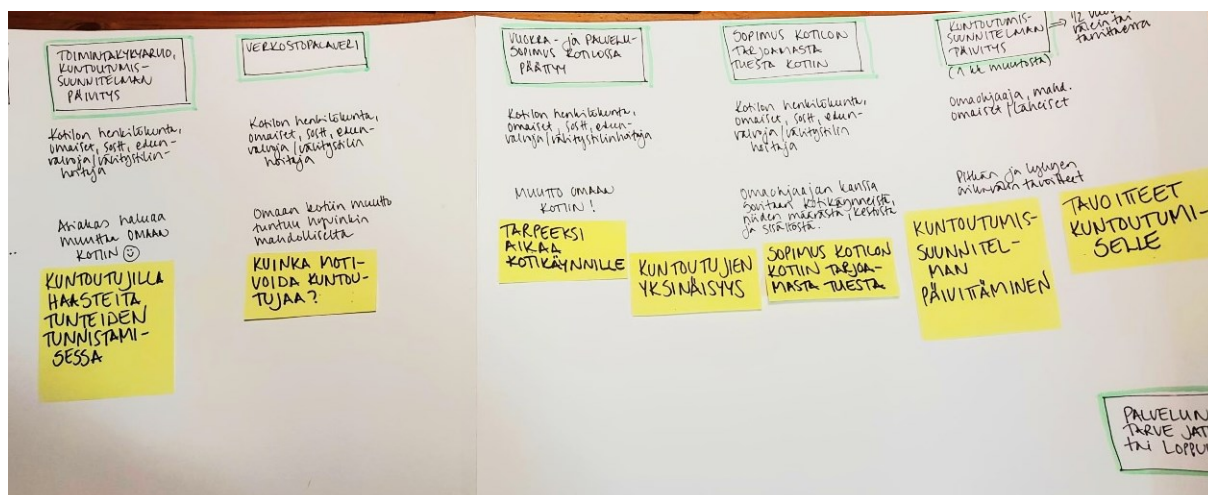 TOIMINTAKYKYARVIO,
KUNTOUTUMIS-
SUUNNITELMAN
PÄIVITYS
Kotilon henkilökunta,
omaiset, sostt, edun-
valvoja/välitystilin-
hoitaja
Asiakas haluaa
muuttaa OMAAN
KOTIIN ☺
KUNTOUTUJILLA
HAASTEITA
TUNTEIDEN
TUNNISTAMI-
SESSA
VERKOSTOPALAVERI
Kotilon henkilökunta,
omaiset, sostt, edun-
valvoja/välitystilin
hoitaja
Omaan kotiin muutto
tuntuu hyvinkin
mahdolliselta
KUINKA MOTI-
VOIDA KUNTOU-
TUJAA?
VUOKRA- ja PALVELU-
SOPIMUS KOTILOSSA
PÄÄTTYY
Kotilon henkilökunta,
omaiset, sostt, edun-
valvoja/välitystilinhoitaja
MUUTTO OMAAN
KOTIIN!
TARPEEKSI
AIKAA
KOTIKÄYNNILLE
KUNTOUTUJIEN
YKSINÄISYYS
SOPIMUS KOTILON
TARJOAMASTA
TUESTA KOTIIN
Kotilon henkilökunta,
omaiset, sostt, edun-
valvoja/välitystilin
hoitaja
Omaohjaajan kanssa
sovitaan kotikäynneistä,
niiden määrästä, kestosta
ja sisällöstä.
SOPIMUS KOTILON
KOTIIN TARJOA-
MASTA TUESTA
KUNTOUTUMIS-
SUUNNITELMAN
PÄIVITYS
(1 kk muutosta)
⇒ 1/2 vuoden
välein tai
tarvittaessa
Omaohjaaja, mahd.
omaiset/läheiset
Pitkän ja lyhyen
aikavälin tavoitteet
KUNTOUTUMIS-
SUUNNITEL-
MAN
PÄIVITTÄMINEN
TAVOITTEET
KUNTOUTUMI-
SELLE
PALVELUN
TARVE JAT
tai LOPPU